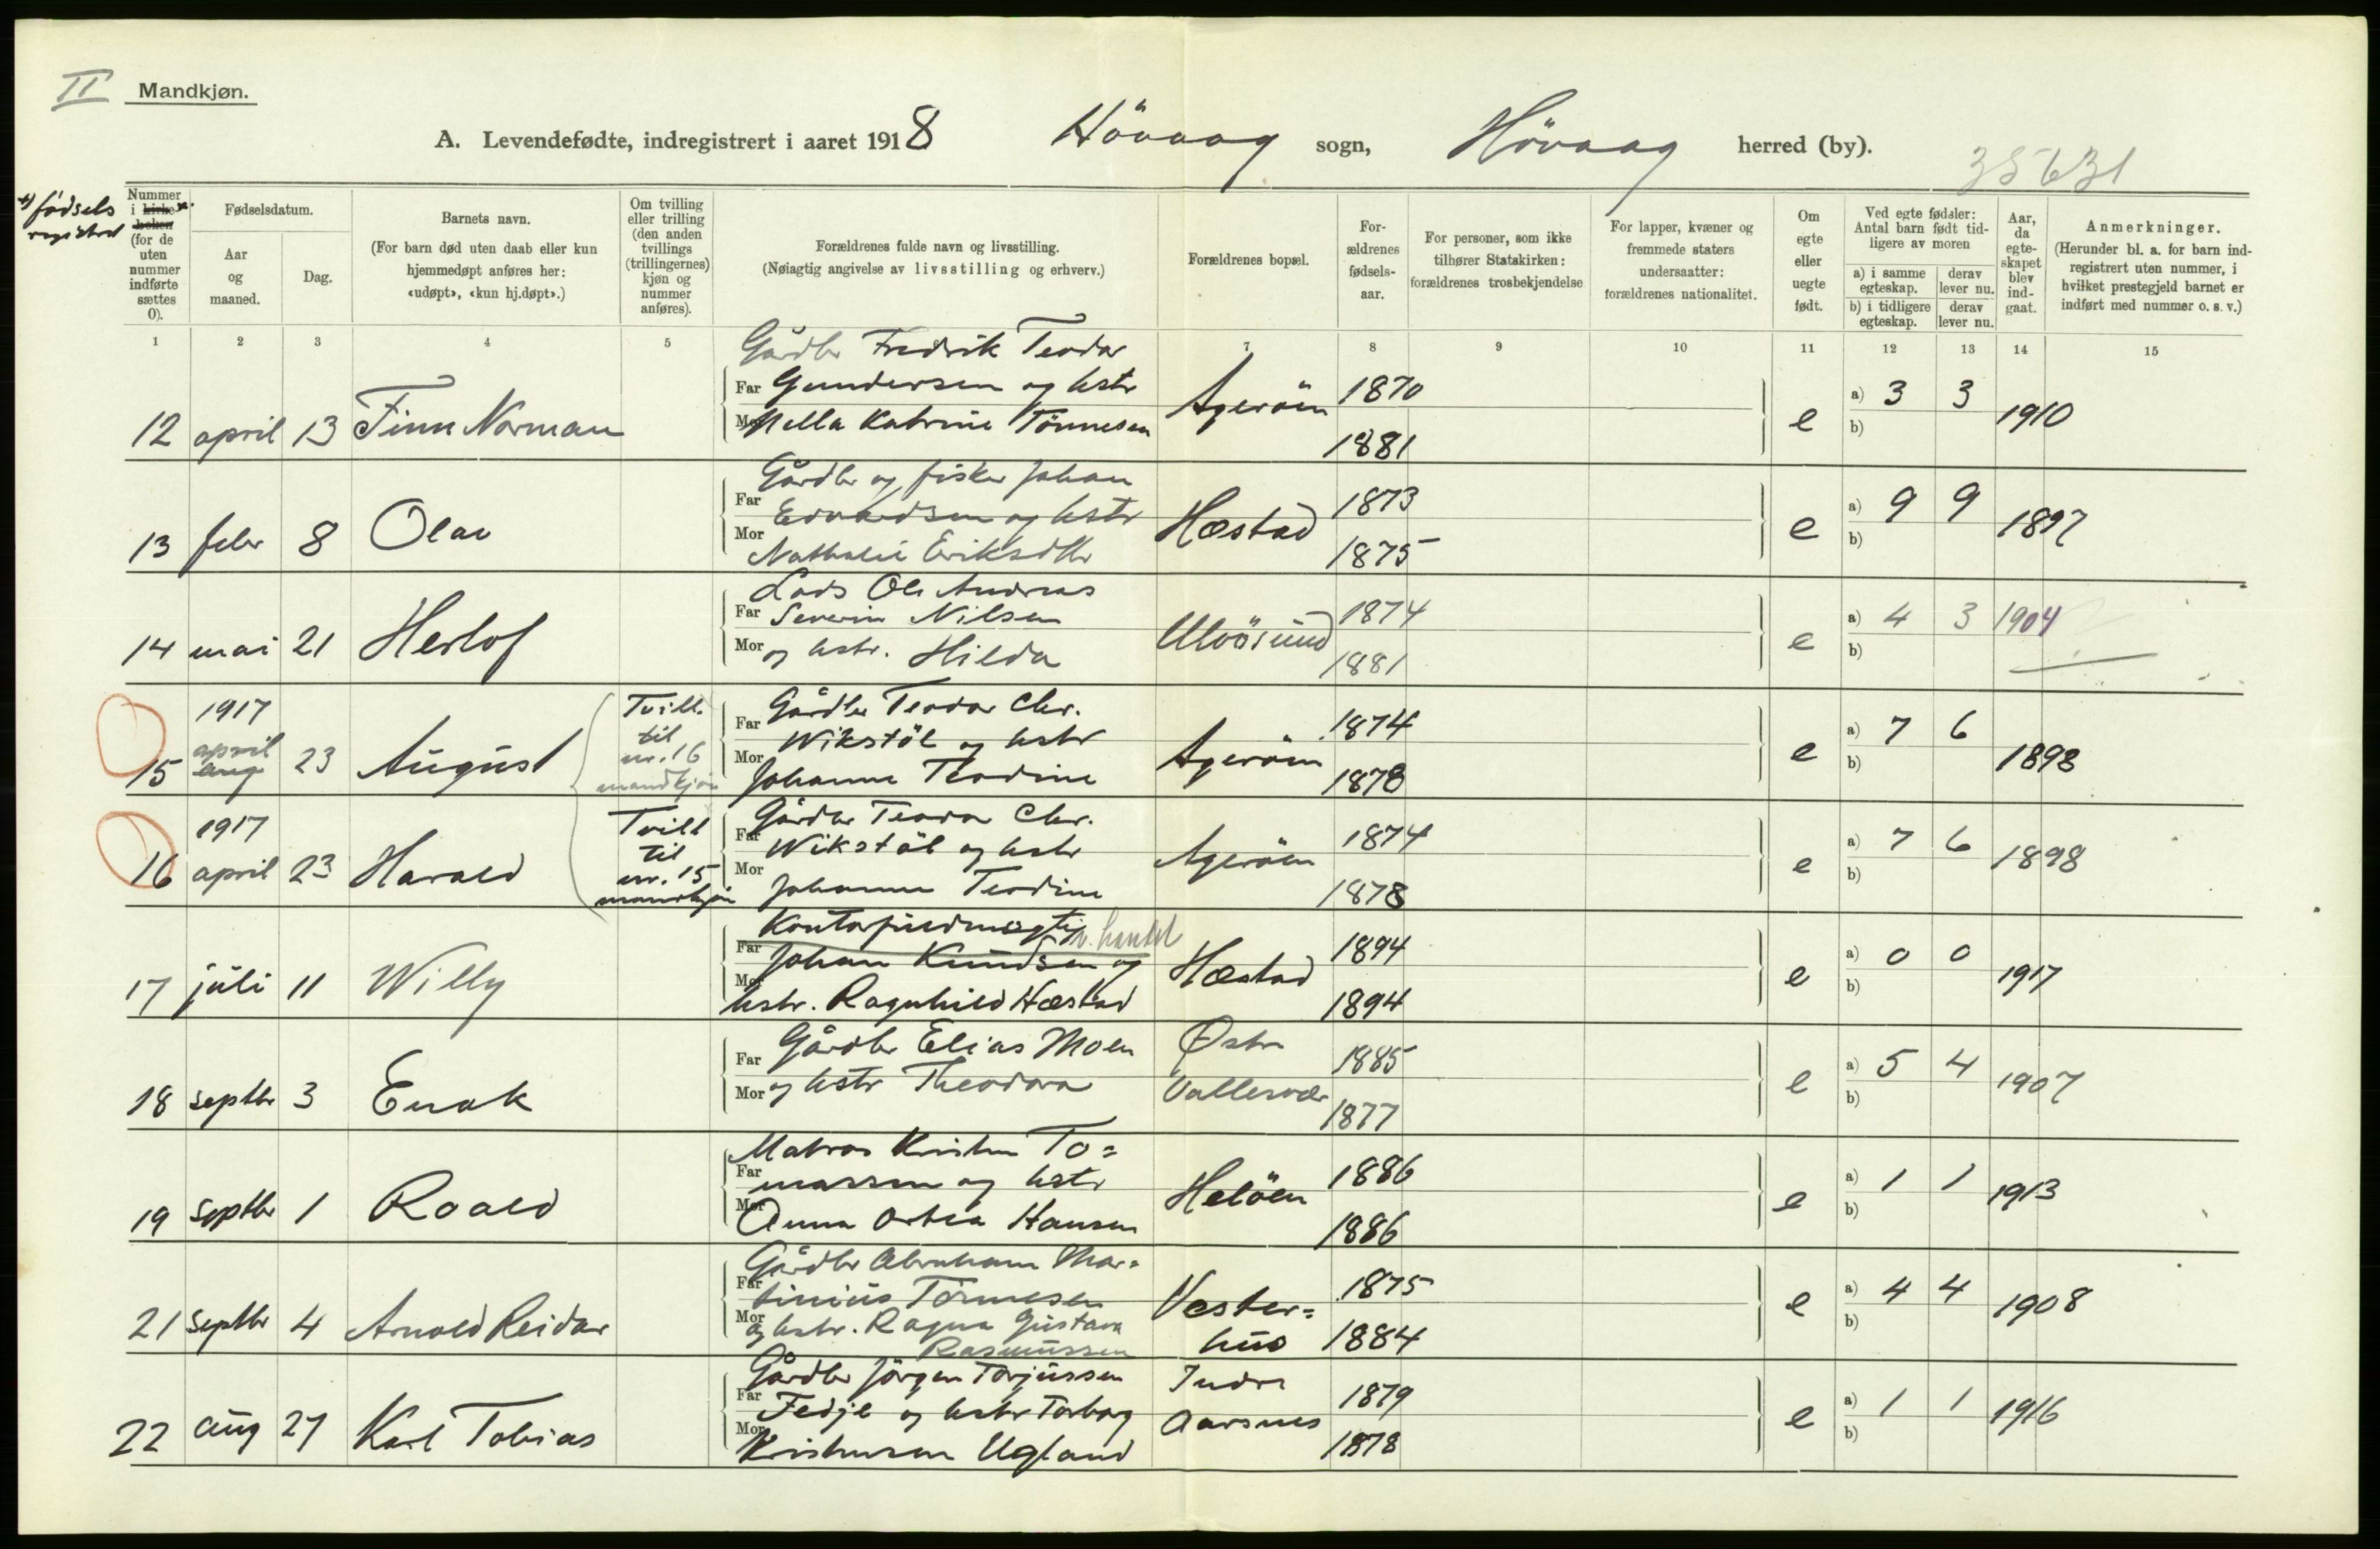 II Mandkjøn.
A. Levendefødte, indregistrert i aaret 1918 Hövaag sogn, Hövaag herred (by). 35631
x) fødsels registret
Nummer i kirkeboken x. (for de uten nummer indførte sættes 0).
Fødselsdatum.
Aar og maaned.
Dag.
Barnets navn.
(For barn død uten daab eller kun hjemmedøpt anføres her: «udøpt», «kun hj.døpt».)
Om tvilling eller trilling (den anden tvillings (trillingernes) kjøn og nummer anføres).
Forældrenes fulde navn og livsstilling.
(Nøiagtig angivelse av livsstilling og erhverv.)
Forældrenes bopæl.
Forældrenes fødselsaar.
For personer, som ikke tilhører Statskirken: forældrenes trosbekjendelse
For lapper, kvæner og fremmede staters undersaatter: forældrenes nationalitet.
Om egte eller uegte født.
Ved egte fødsler: Antal barn født tidligere av moren
a) i samme egteskap. derav lever nu.
b) i tidligere egteskap. derav lever nu.
Aar, da egteskapet blev indgaat.
Anmerkninger.
(Herunder bl. a. for barn indregistrert uten nummer, i hvilket prestegjeld barnet er indført med nummer o. s. v.)
1 2 3 4 5 7 8 9 10 11 12 13 14 15
Gårdbr Fredrik Teodor
Far Gundersen og hstr 1870 a) 3 3
12 april 13 Finn Norman Mor Nella Katrine Tönnesen Ageröen 1881 e b) 1910
Gårdbr og fisker Johan
Far Edvardsen og hstr 1873 a) 9 9
13 febr 8 Olav Mor Nathalie Eriksdtr Hæstad 1875 e b) 1897
Lods Ole Andreas
Far Severin Nilsen 1874 a) 4 3 1904
14 mai 21 Herlof Mor og hstr. Hilda Ulvösund 1881 e b)
1917 Tvill. til nr. 16 mandkjøn
Far Gårdbr Teodor Chr. 1874 a) 7 6
Wikstöl og hstr
15 april aug 23 August Mor Johanne Teodine Ageröen 1878 e b) 1898
1917 Tvill til nr. 15 mandkjøn
Far Gårdbr Teodor Chr. 1874 a) 7 6
Wikstöl og hstr
16 april 23 Harald Mor Johanne Teodine Ageröen 1878 e b) 1898
Kontorfuldmægtig v. handel
Far Johan Knudsen og 1894 a) 0 0
17 juli 11 Willy Mor hstr. Ragnhild Hæstad Hæstad 1894 e b) 1917
Far Gårdbr Elias Moen Østre 1885 a) 5 4
18 septbr 3 Enok Mor og hstr Theodora Vallesvær 1877 e b) 1907
Matros Kristen To=
Far massen og hstr 1886 a) 1 1
19 septbr 1 Roald Mor Anna Ortea Hansen Helöen 1886 e b) 1913
Gårdbr Abraham Mar=
Far tinius Tönnesen Vester= 1875 a) 4 4
21 septbr 4 Arnold Reidar Mor og hstr. Ragna Gustava hus 1884 e b) 1908
Rasmussen
Gårdbr Jörgen Torjussen Indre
Far Fedje og hstr Torborg Aarsnes 1879 a) 1 1
22 aug 27 Karl Tobias Mor Kristensen Ugland 1878 e b) 1916